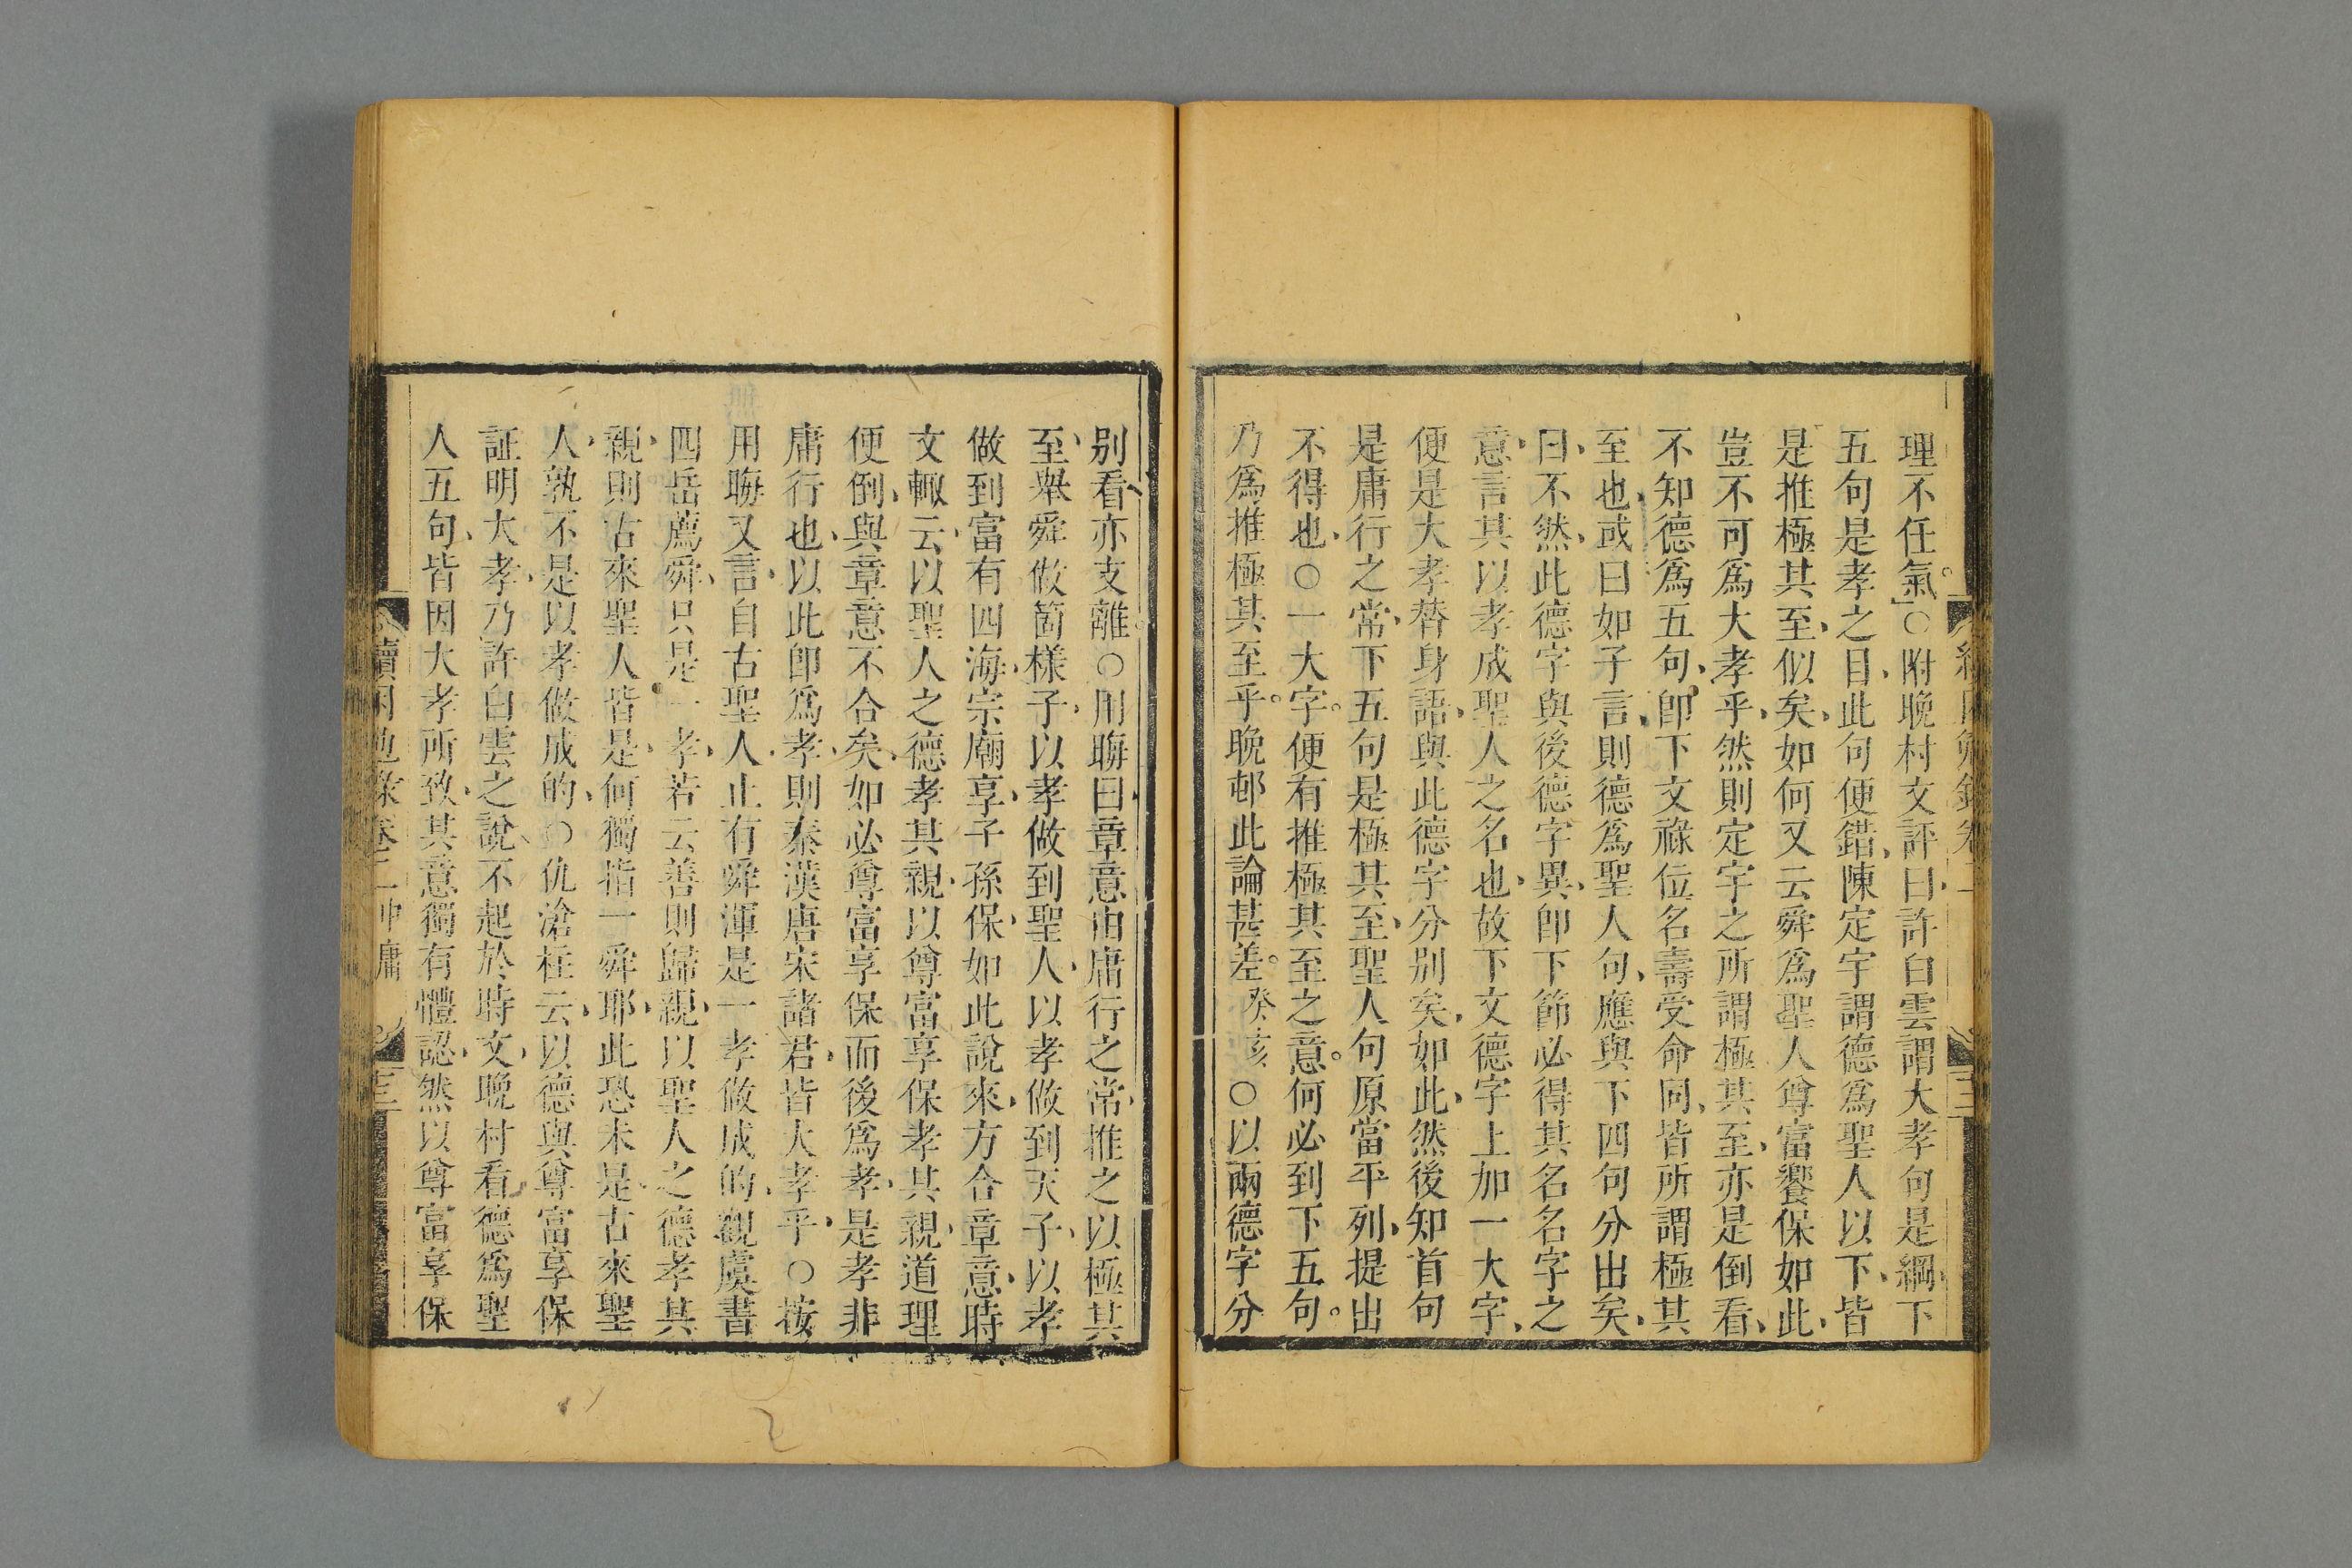 理不任氣。○附晚村文評曰、許白雲謂大孝句是綱、下
五句是孝之目、此句便錯、陳定宇謂德爲聖人以下、皆
是推極其至、似矣、如何又云舜爲聖人尊富饗保如此、
豈不可爲大孝乎、然則定宇之所謂極其至、亦是倒看、
不知德爲五句、卽下文祿位名壽受命同、皆所謂極其
至也、或曰如子言、則德爲聖人句、應與下四句分出矣、
曰、不然、此德字與後德字異、卽下節必得其名名字之
意、言其以孝成聖人之名也、故下文德字上加一大字、
便是大孝替身語、與此德字分別矣、如此、然後知首句
是庸行之常、下五句是極其至、聖人句原當平列、提出
不得也、○一大字。便有推極其至之意。何必到下五句。
乃爲推極其至乎。晚邨此論甚差。癸亥○以兩德字分
别看亦支離。○用晦曰、章意由庸行之常、推之以極其
至、舉舜做箇樣子、以孝做到聖人、以孝做到天子、以孝
做到富有四海、宗廟享、子孫保、如此說來、方合章意、時
文輒云、以聖人之德孝其親、以尊富享保孝其親、道理
便倒、與章意不合矣、如必尊富享保而後爲孝、是孝非
庸行也、以此卽爲孝、則秦漢唐宋諸君、皆大孝乎、○按
用晦又言、自古聖人、止有舜渾是一孝做成的、觀虞書
四岳薦舜、只是一孝、若云善則歸親、以聖人之德孝其
親、則古來聖人皆是、何獨指一舜耶、此恐未是、古來聖
人、孰不是以孝做成的、○仇滄柱云、以德與尊富享保
証明大孝、乃許白雲之說、不起於時文、晚村看德爲聖
人五句、皆因大孝所致、其意獨有體認、然以尊富享保
讀困勉錄卷二 中庸 三